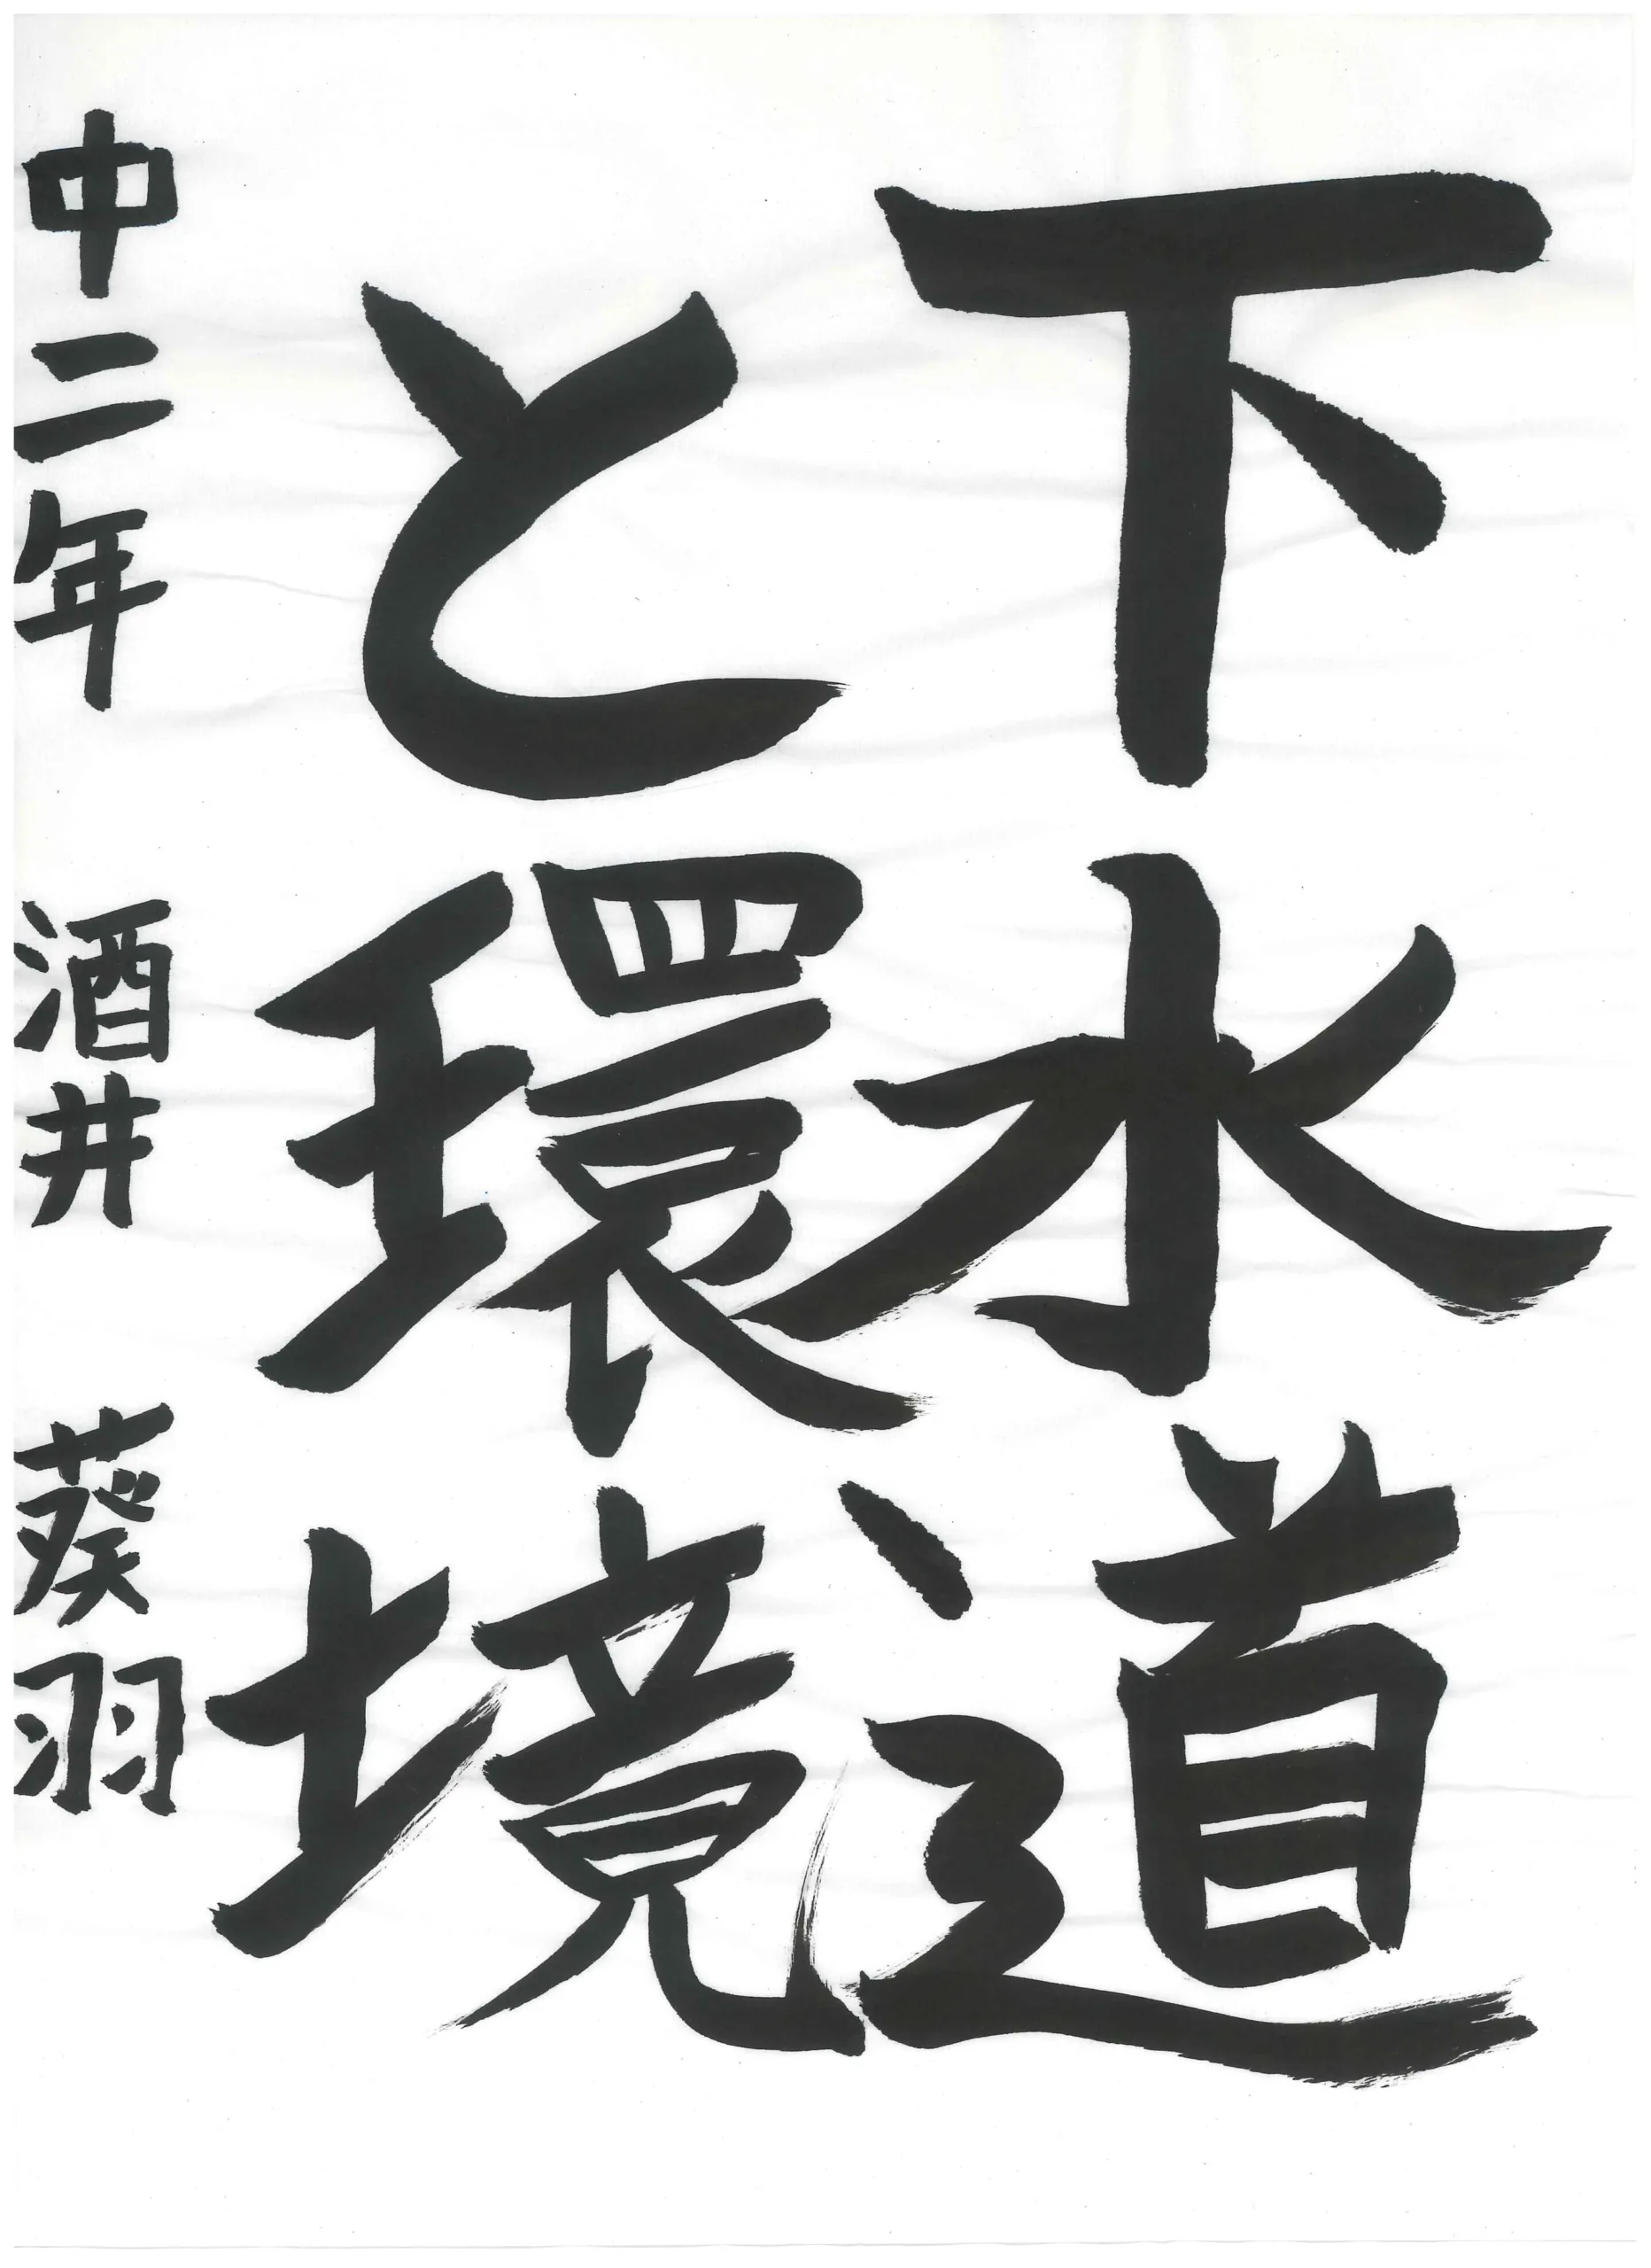 下水道
と環境
中二年 酒井 葵羽